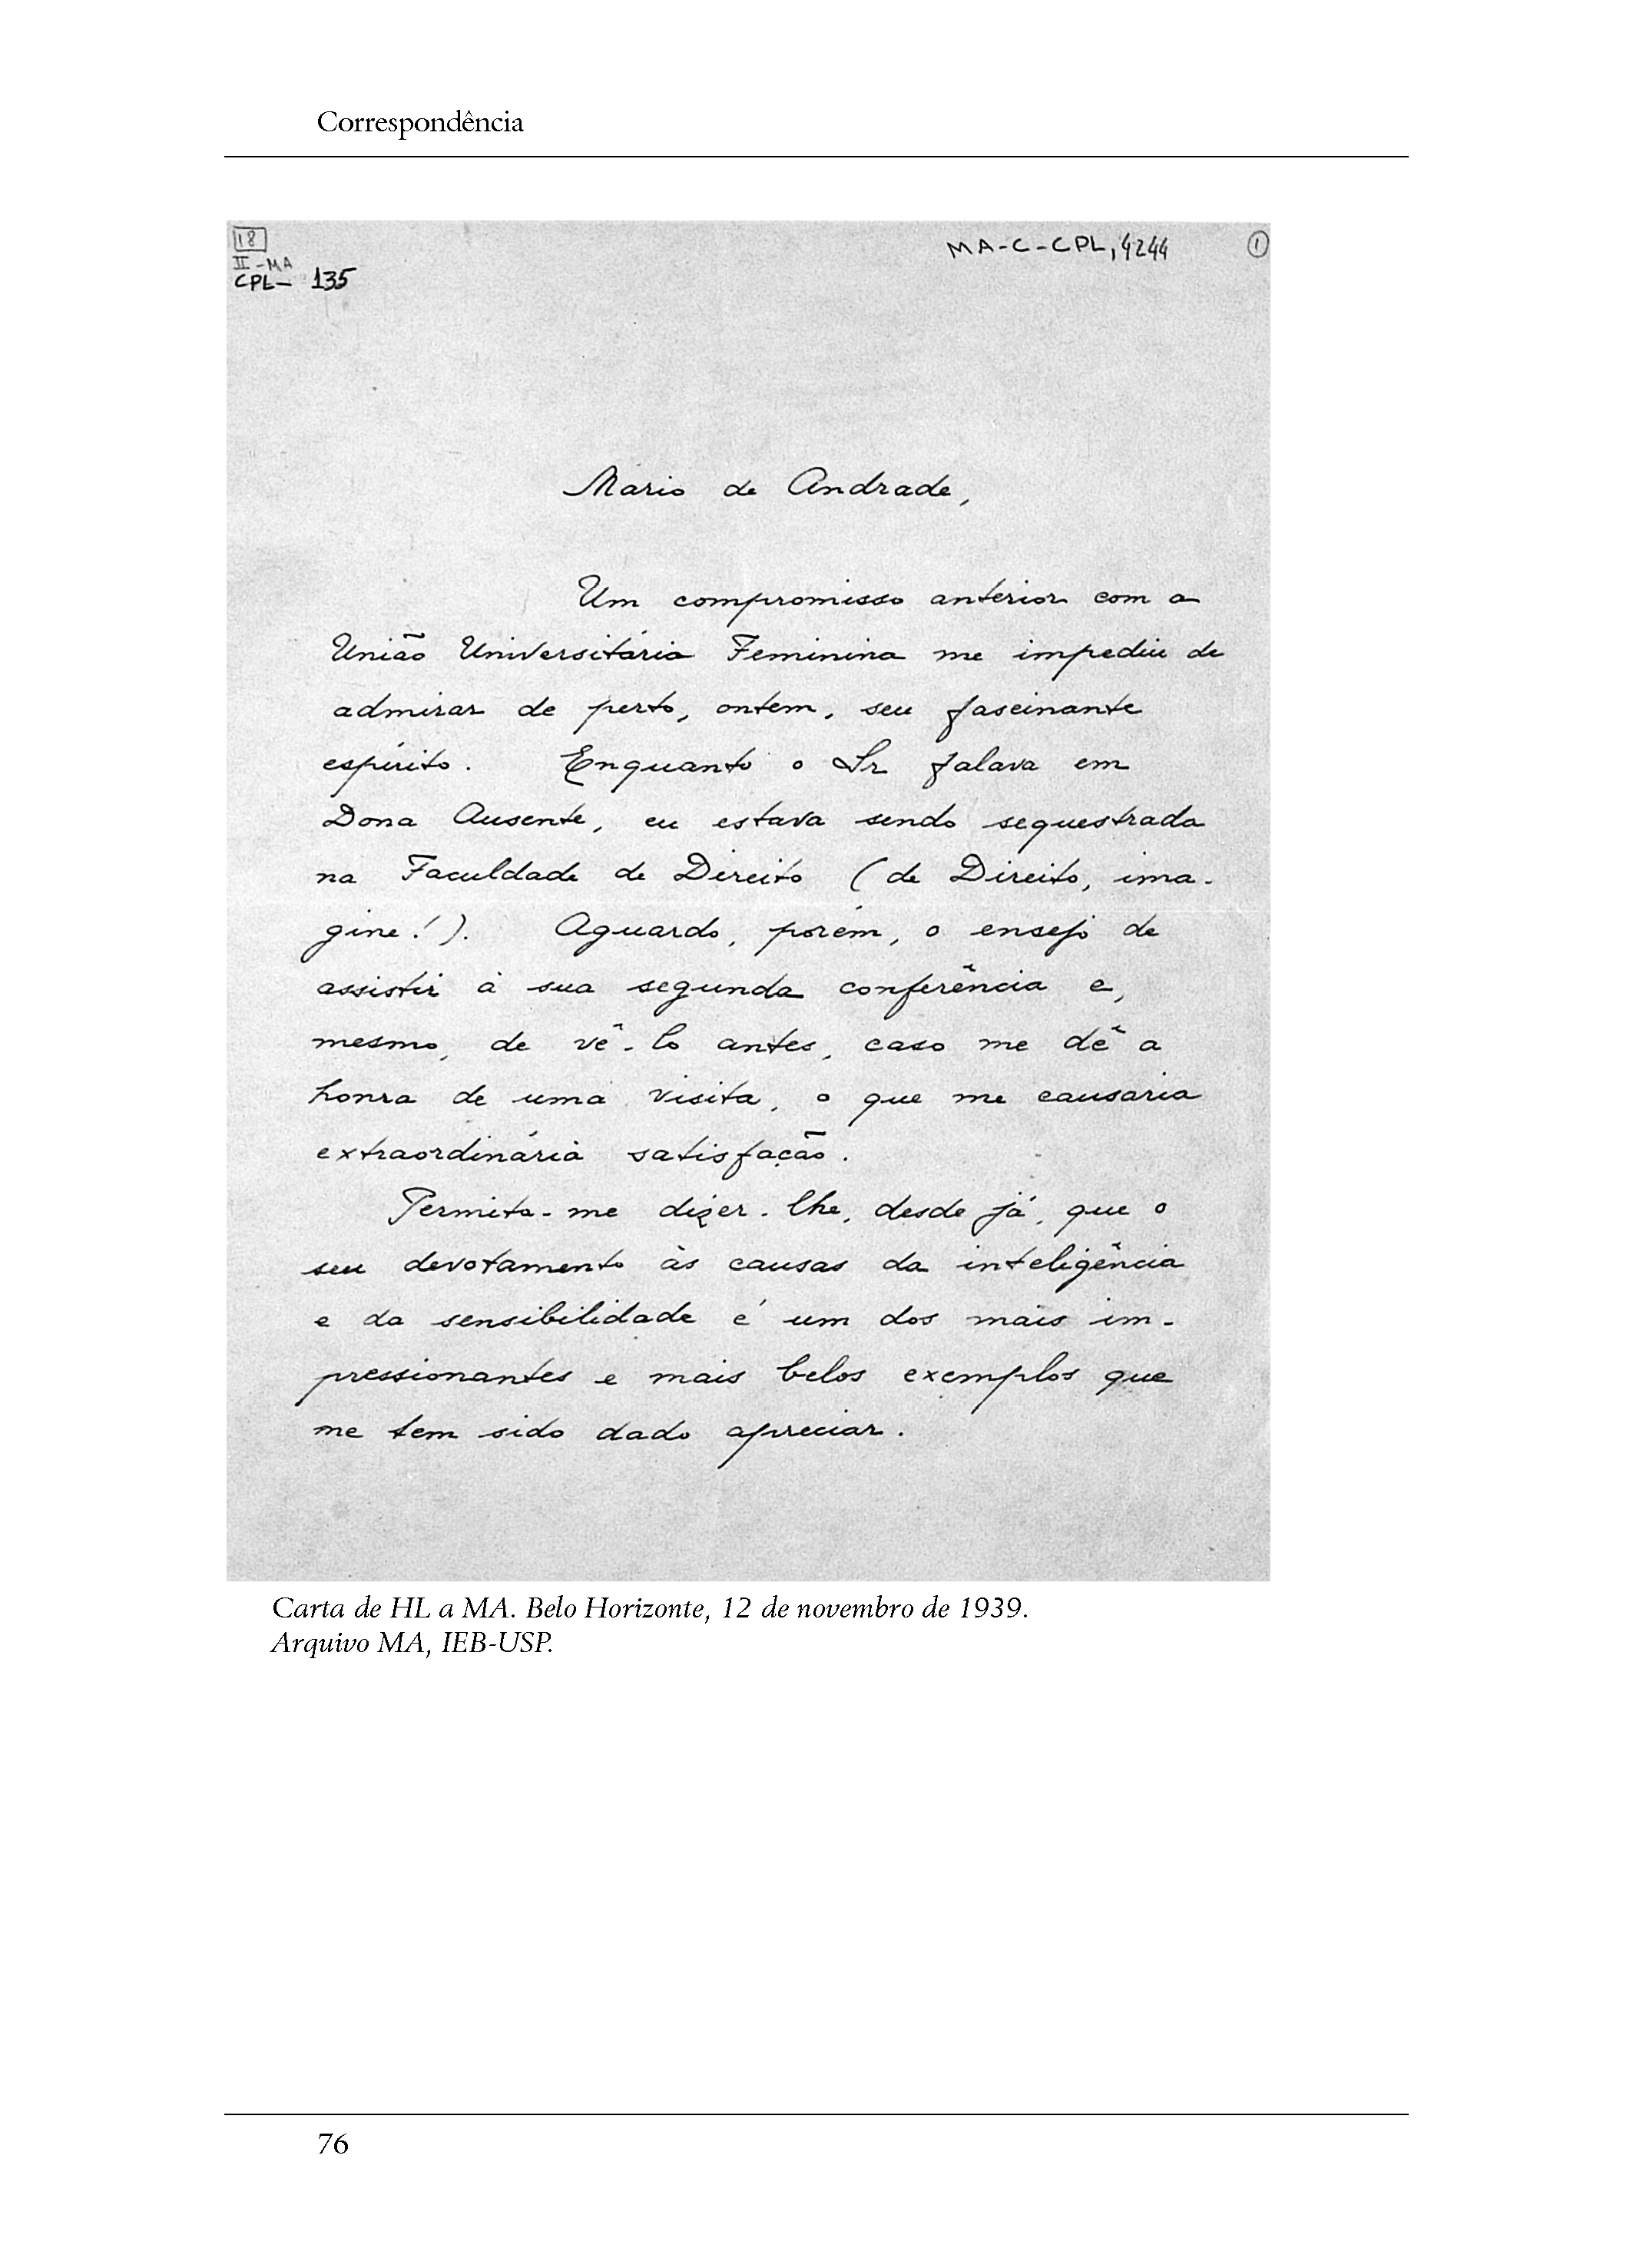 Correspondência
18
II-MA
CPL- 135
MA-C-CPL, 4244
1
Mario de Andrade,
Um compromisso anterior com a
União Universitária Feminina me impediu de
admirar de perto, ontem, seu fascinante
espírito. Enquanto o Sr falava em
Dona Ausente, eu estava sendo sequestrada
na Faculdade de Direito (de Direito, ima-
gine!). Aguardo, porém, o ensejo de
assistir à sua segunda conferência e,
mesmo, de vê-lo antes, caso me dê a
honra de uma visita, o que me causaria
extraordinária satisfação.
Permita-me dizer-lhe, desde já, que o
seu devotamento às causas da inteligência
e da sensibilidade é um dos mais im-
pressionantes e mais belos exemplos que
me tem sido dado apreciar.
Carta de HL a MA. Belo Horizonte, 12 de novembro de 1939.
Arquivo MA, IEB-USP.
76